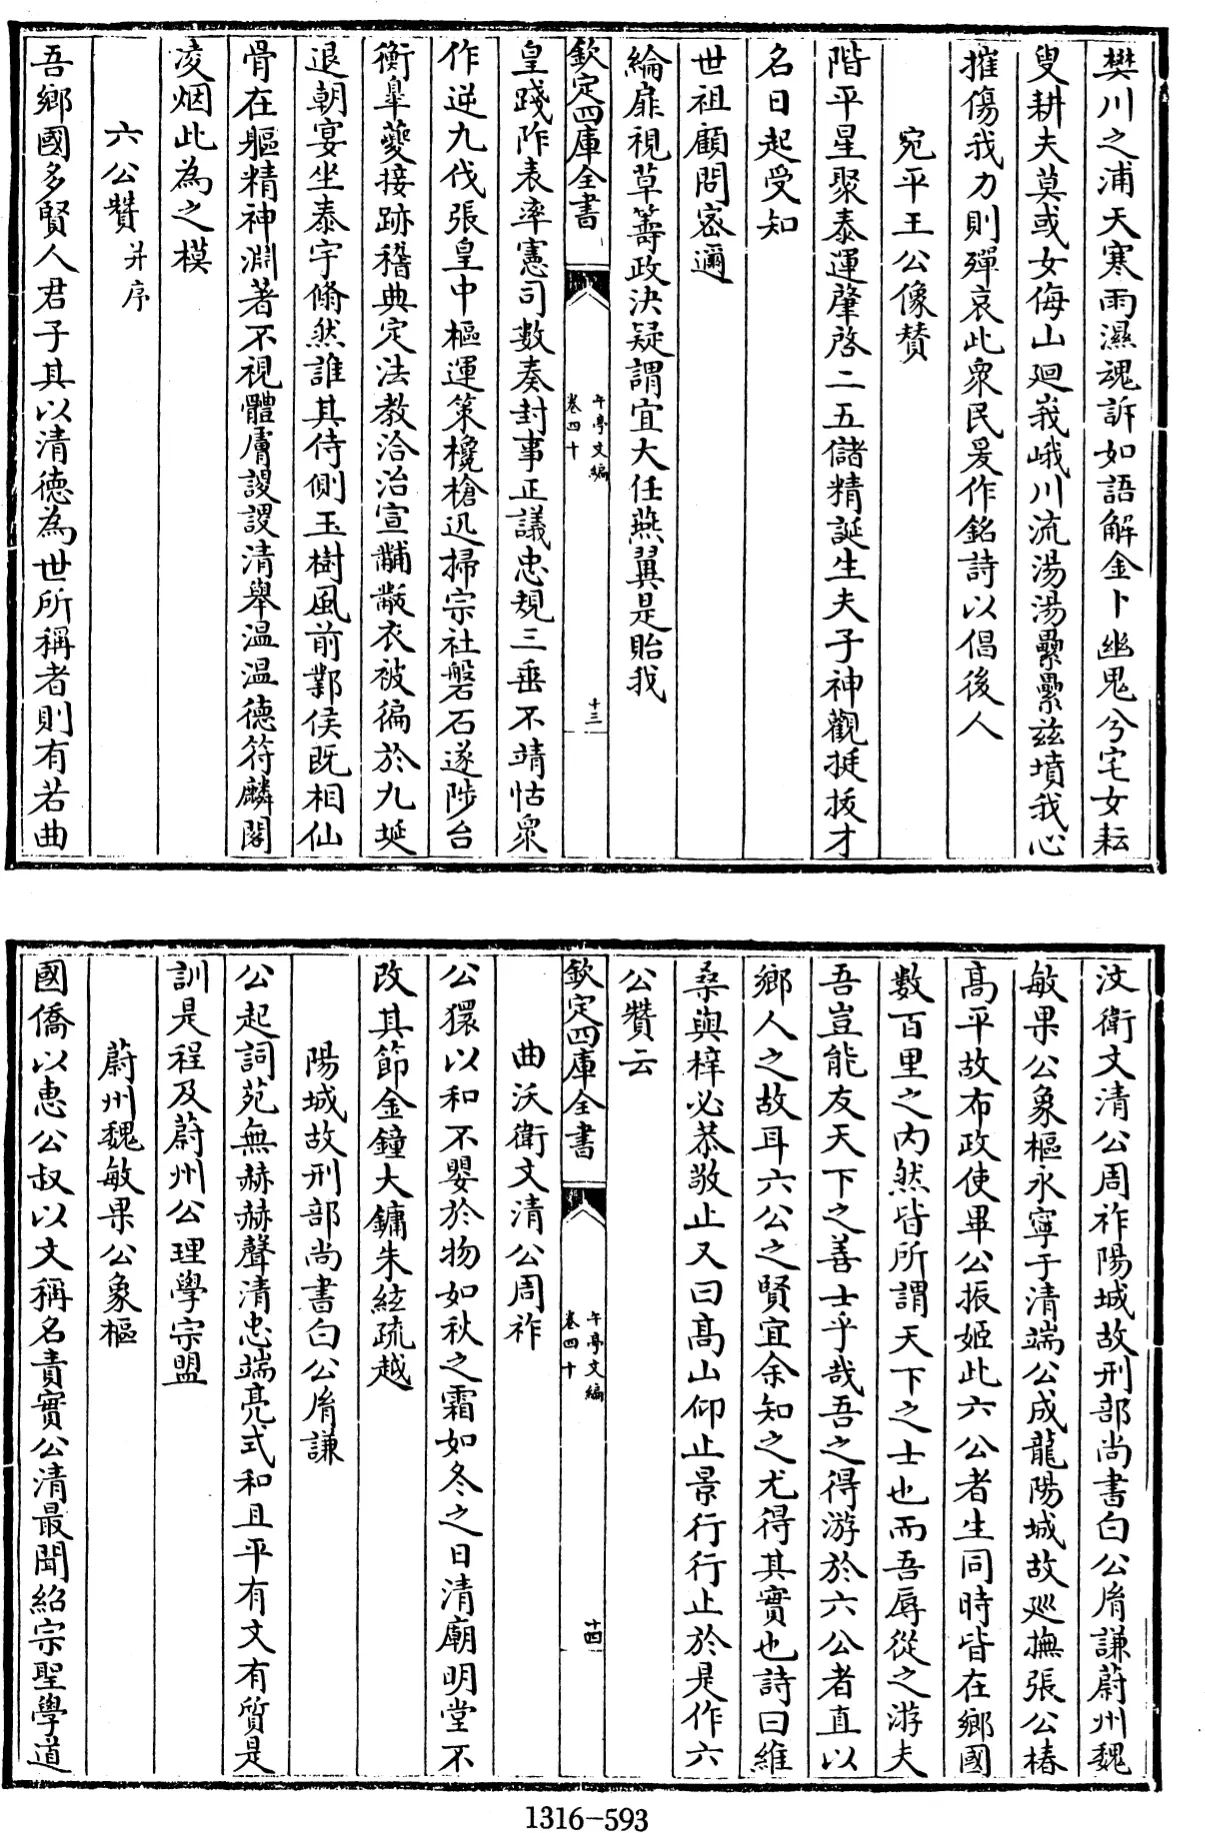 樊川之浦天寒雨濕魂訴如語解金卜幽鬼兮宅女耘
叟耕夫莫或女侮山廻峩峨川流湯湯纍纍兹墳我心
摧傷我力則殫哀此衆民爰作銘詩以倡後人
宛平王公像賛
階平星聚泰運肇啓二五儲精誕生夫子神觀挺拔才
名日起受知
世祖顧問密邇
綸扉視草籌政決疑謂宜大任燕翼是貽我
欽定四庫全書
午亭文編
卷四十
十三
皇踐阼表率憲司數奏封事正議忠規三垂不靖怙衆
作逆九伐張皇中樞運策欃槍迅掃宗社磐石遂陟台
衡臯夔接跡稽典定法教洽治宣黼黻衣被徧於九埏
退朝宴坐泰宇翛然誰其侍側玉樹風前鄴侯既相仙
骨在軀精神淵著不視體膚謖謖清舉温温德符麟閣
凌烟此為之模
六公贊并序
吾鄉國多賢人君子其以清德為世所稱者則有若曲
汶衛文清公周祚陽城故刑部尚書白公㣧謙蔚州魏
敏果公象樞永寧于清端公成龍陽城故廵撫張公椿
高平故布政使畢公振姬此六公者生同時皆在鄉國
數百里之内然皆所謂天下之士也而吾辱從之游夫
吾豈能友天下之善士乎哉吾之得游於六公者直以
鄉人之故耳六公之賢宜余知之尤得其實也詩曰維
桑與梓必恭敬止又曰高山仰止景行行止於是作六
公贊云
欽定四庫全書
午亭文編
卷四十
十四
曲沃衛文清公周祚
公獧以和不嬰於物如秋之霜如冬之日清廟明堂不
改其節金鐘大鏞朱絃疏越
陽城故刑部尚書白公㣧謙
公起詞苑無赫赫聲清忠端亮式和且平有文有質是
訓是程及蔚州公理學宗盟
蔚州魏敏果公象樞
國僑以惠公叔以文稱名責實公清最聞紹宗聖學道
1316-593